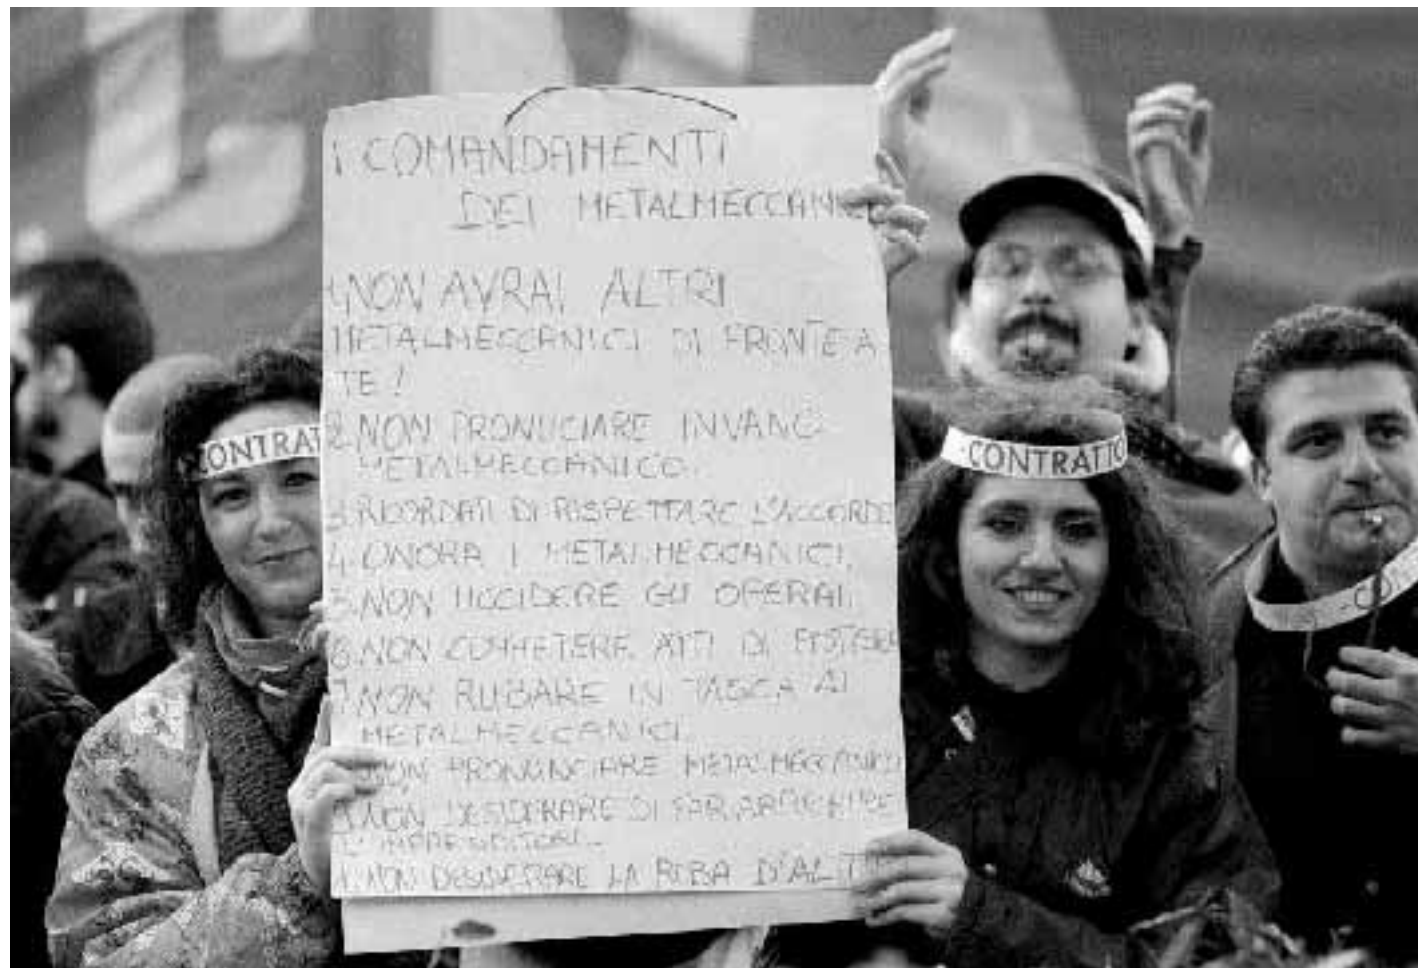 I COMANDAMENTI
DEI METALMECCANICI
1. NON AVRAI ALTRI
METALMECCANICI DI FRONTE A
TE!
2. NON PRONUCIARE INVANO
METALMECCANICO.
3. RICORDATI DI RISPETTARE L'ACCORDO
4. ONORA I METALMECCANICI.
5. NON UCCIDERE GLI OPERAI.
6. NON COMMETERE ATTI DI
7. NON RUBARE IN TASCA AI
METALMECCANICI.
NON PRONUNCIARE METALMECCANICI
9. NON DESIDERARE DI FAR ARRICHIRE
NON DESIDERARE LA ROBA D'ALTRI
CONTRAT
CONTRATTO
CO